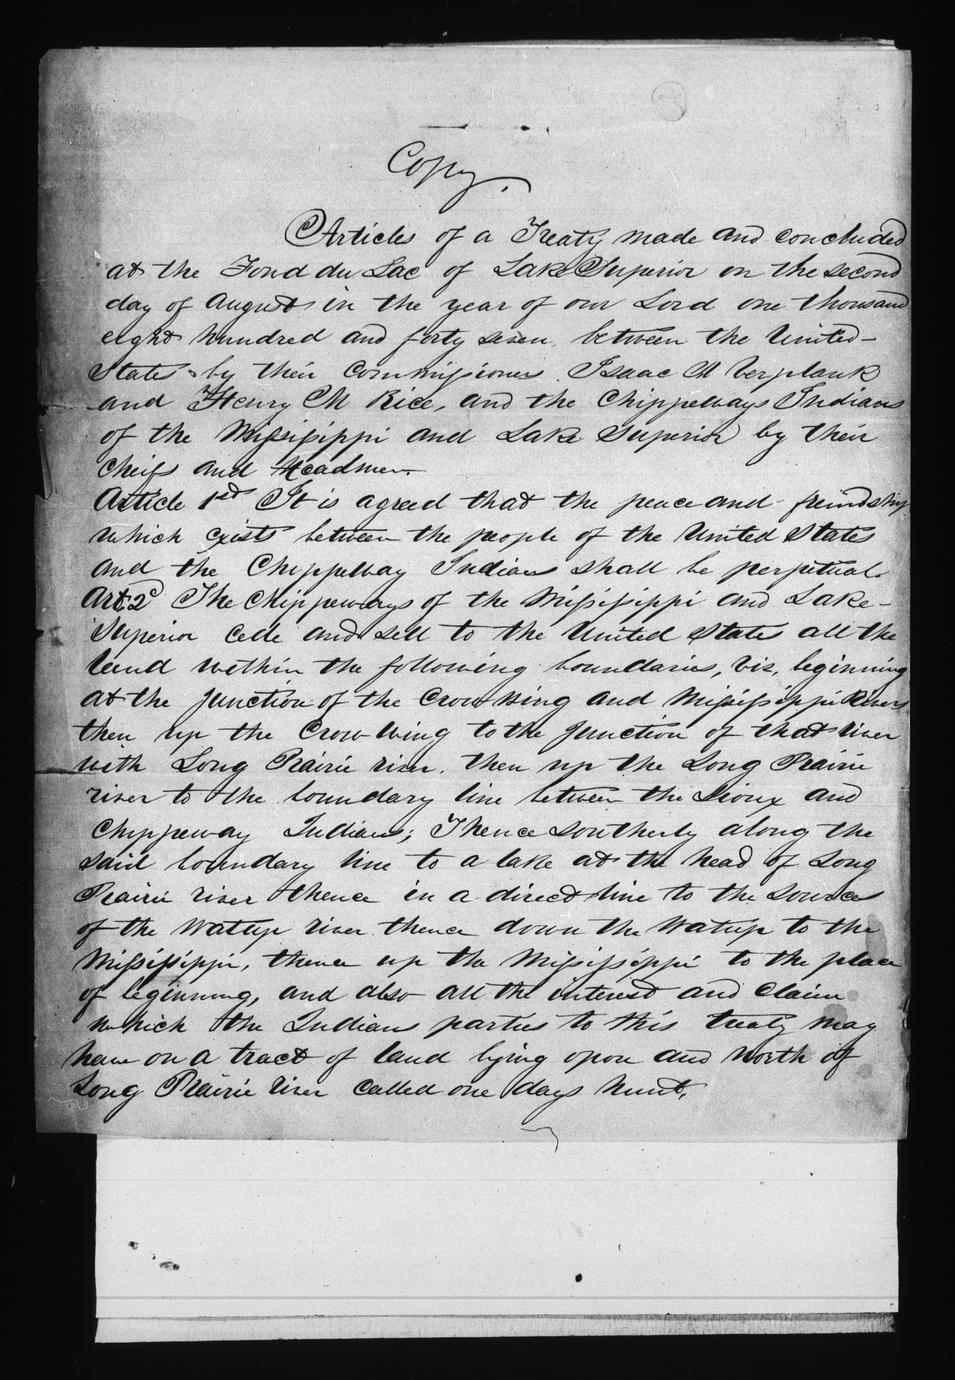 Copy.
Articles of a Treaty made and concluded
at the Fond du Lac of Lake Superior on the second
day of August in the year of our Lord one thousand
eight hundred and forty seven, between the United
States by their Commissioners Isaac A Verplank
and Henry M Rice, and the Chippeways Indians
of the Missisippi and Lake Superior by their
Cheifs and Headmen
Article 1st It is agreed that the peace and freindship
which exists between the people of the United States
and the Chippeway Indians shall be perpetual.
Art 2d The Chippeways of the Missisippi and Lake
Superior cede and sell to the United States all the
land within the following boundaries, viz, beginning
at the junction of the Crow wing and Missisippi Rivers
then up the Crow Wing to the junction of that river
with Long Prairie river, then up the Long Prairie
river to the boundary line between the Sioux and
Chippeway Indians; Thence Southerly along the
said boundary line to a lake at the head of Long
Prairie river thence in a direct line to the source
of the Watup river thence down the Watup to the
Missisippi, thence up the Missisippi to the place
of beginning, and also all the interest and claim
which the Indians parties to this treaty may
have on a tract of land lying upon and north of
Long Prairie river called one days hunt,